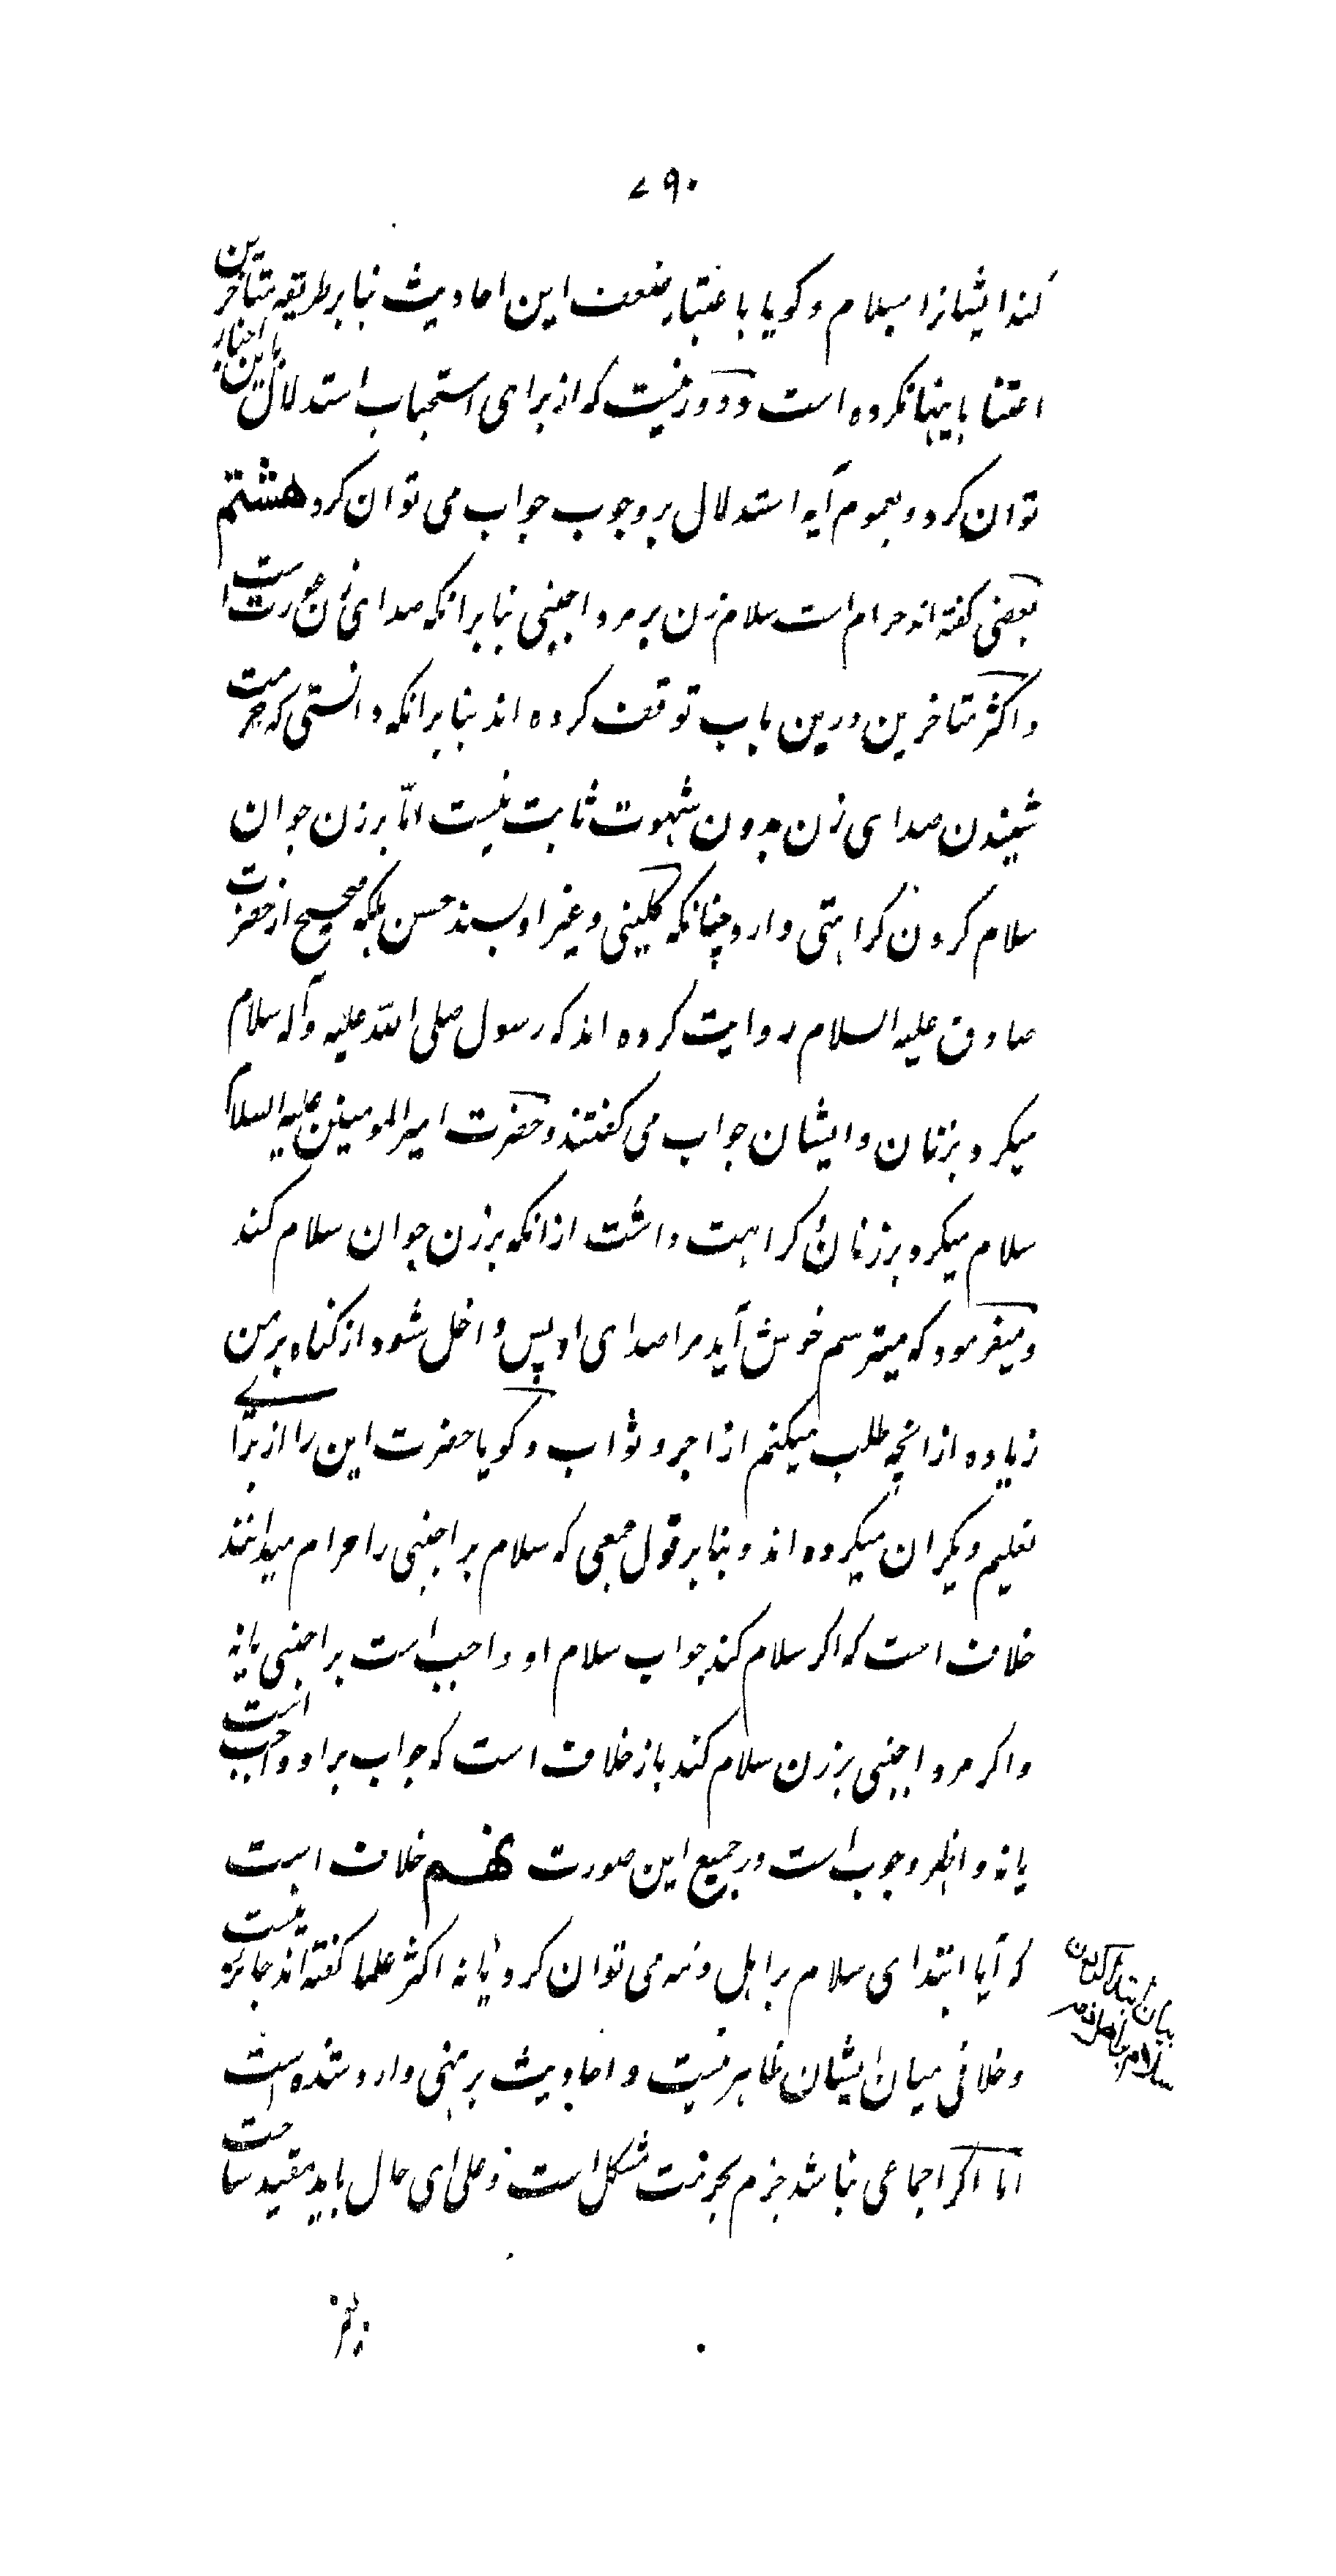 ۷۹۰
کنند ایشانرا بسلام و کویا باعتبار ضعف این احادیث بنا بر طریقه متاخرین
اعتنا باینها نکرده است و دور نیست که از برای استحباب استدلال باین اخبار
توان کرد و بعموم آیه استدلال بر وجوب جواب می توان کرد هشتم
بعضی کفته اند حرام است سلام زن بر مرد اجنبی بنا برانکه صدای زن عورت است
و اکثر متاخرین درین باب توقف کرده اند بنا برانکه دانستی که حرمت
شنیدن صدای زن بدون شهوت ثابت نیست امّا بر زن جوان
سلام کردن کراهتی دارد چنانکه کلینی و غیر او بسند حسن بلکه صحیح از حضرت
صادق علیه السلام روایت کرده اند که رسول صلی الله علیه وآله سلام
میکرد بزنان و ایشان جواب می کفتند و حضرت امیرالمومنین علیه السلام
سلام میکرد بر زنان و کراهت داشت از انکه بر زن جوان سلام کند
و میفرمود که میترسم خوش آید مرا صدای او پس داخل شود از کناه بر من
زیاده از انچه طلب میکنم از اجر و ثواب و کویا حضرت این را از برای
تعلیم دیکران میکرده اند و بنا بر قول جمعی که سلام بر اجنبی را حرام میدانند
خلاف است که اکر سلام کند جواب سلام او واجب است بر اجنبی یا نه
و اکر مرد اجنبی بر زن سلام کند باز خلاف است که جواب بر او واجب است
یا نه و اظهر وجوب است در جمیع این صورت نهم خلاف است
که آیا ابتدای سلام بر اهل ذمه می توان کرد یا نه اکثر علما کفته اند جائز نیست
و خلافی میان ایشان ظاهر نیست و احادیث بر نهی وارد شده است
امّا اکر اجماعی نباشد جزم بحرمت مشکل است و علی ای حال باید مقید ساخت
بیان ابتدا کردن
سلام بر اهل ذمه